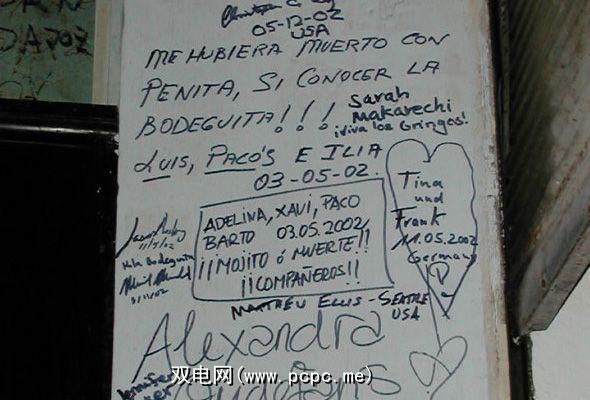 05-12-02
USA
ME HUBIERA MUERTO CON
PENITA, SI CONOCER LA
BODEGUITA!!!
Sarah
Makarechi
¡Viva los Gringos!
LUIS, PACO'S E ILIA
03-05-02.
ADELINA, XAVI, PACO
BARTO 03.05.2002
¡¡MOJITO ó MUERTE!!
¡¡COMPAÑEROS!!
Tina
und
Frank
11.05.2002
Germany
MATTHEW ELLIS - SEATTLE
USA
Alexandra
双电网(www.pcpc.me)